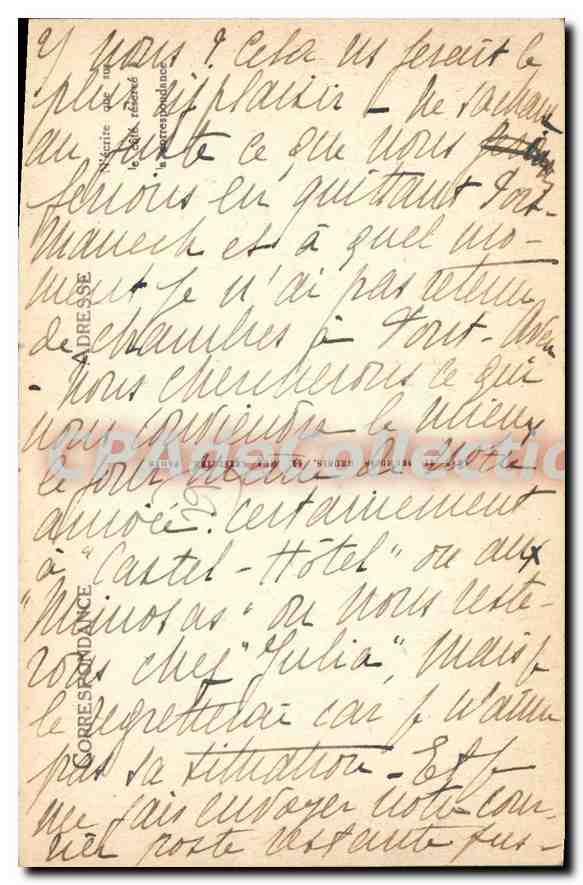 y nous ? Cela ns ferait le
plus gd plaisir - ne sachant
au juste ce que nous
ferions en quittant Port-
Manech et à quel mo-
ment je n'ai pas retenu
de chambres à Pont-Aven
- Nous chercherons ce qui
nous conviendra le mieux
le jour même de notre
arrivée. certainement
à "Castel-Hôtel" ou aux
"Mimosas" ou nous reste-
rons chez "Julia", mais je
le regretterai car je n'aime
pas sa situation - Et je
me fais envoyer notre cour-
rier poste restante jus-
N'écrire que sur
le côté réservé à
la correspondance
ADRESSE
CORRESPONDANCE
CPA de Collection